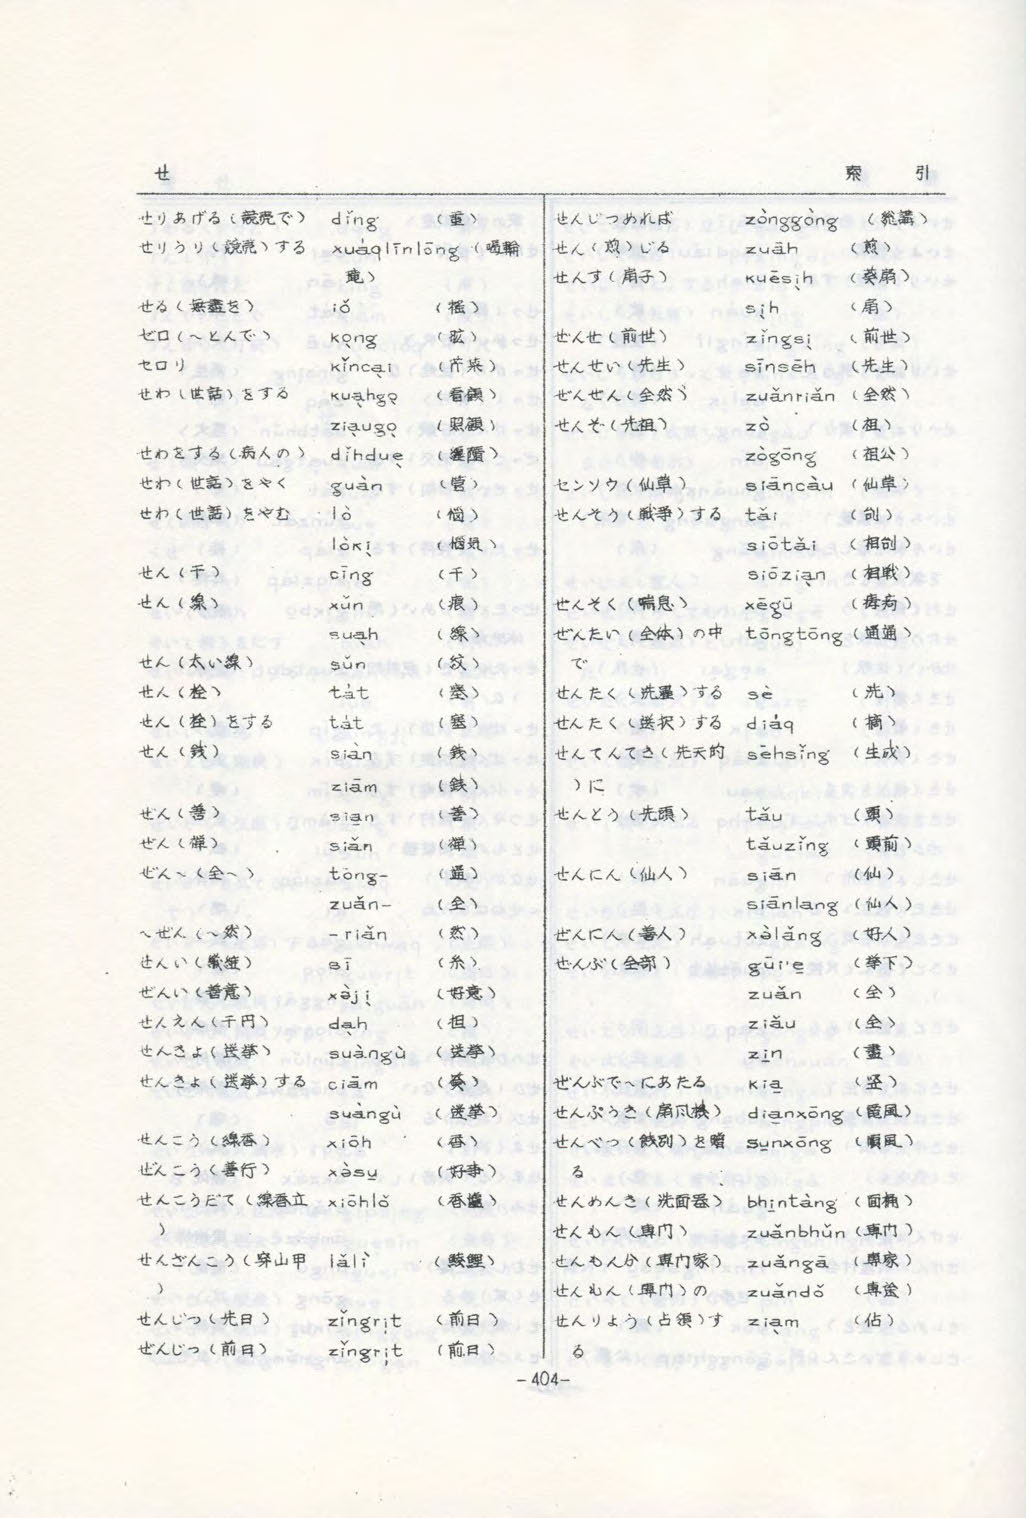 せ
索　引
せりあげる(競売で) dǐng (重)
せりうり(競売)する xuáqlīnlōng (喝輪
竜)
せる(無盡を) iǒ (搖)
ゼロ(~とんで) kọng
セロリ kǐncạị
せわ(世話)をする kuạhgọ (看顧)
ziạugọ (照顧)
せわをする(病人の) dǐhduẹ
せわ(世話)をやく guàn (管)
せわ(世話)をやむ lò (悩)
lòkị (悩気)
せん(千) cīng (千)
せん(線) xǔn (痕)
suạh (線)
せん(太い線) sǔn (紋)
せん(栓) tát (塞)
せん(栓)をする tát (塞)
せん(銭) siàn (銭)
ziām
ぜん(善) siạn (善)
ぜん(禅) siǎn (禅)
ぜん~(全~) tōng- (通)
zuǎn- (全)
~ぜん(~然) -riǎn (然)
せんい(繊維) sī (糸)
ぜんい(善意) xə̀jị (好意)
せんえん(千円) dạh (担)
せんきょ(送挙) suàngù (送挙)
せんきょ(送挙)する ciām
suàngù (送挙)
せんこう(線香) xiōh (香)
ぜんこう(善行) xə̀sụ (好事)
せんこうだて(線香立 xiōhlǒ (香爐
) 
せんざんこう(穿山甲 lǎlì (鯪鯉)
)
せんじつ(先日) zǐngrịt (前日)
ぜんじつ(前日) zǐngrịt (前日)
せんじつめれば zònggòng (総講)
せん(煎)じる zuāh (煎)
せんす(扇子) kuēsịh (葵扇)
sịh (扇)
せんせ(前世) zǐngsị (前世)
せんせい(先生) sīnsēh (先生)
ぜんぜん(全然) zuǎnriǎn (全然)
せんぞ(先祖) zò (祖)
zògōng (祖公)
センソウ(仙草) siāncàu (仙草)
せんそう(戦争)する tǎi (刣)
siōtǎi (相刣)
siōziạn (相戦)
せんそく(喘息) xēgū
ぜんたい(全体)の中 tōngtōng (通通)
で
せんたく(洗濯)する sè (洗)
せんたく(送択)する diáq (摘)
せんてんてき(先天的 sēhsǐng (生成)
)に
せんとう(先頭) tǎu (頭)
tǎuzǐng (頭前)
せんにん(仙人) siān (仙)
siānlang (仙人)
ぜんにん(善人) xə̀lǎng (好人)
ぜんぶ(全部) gūi'ẹ (挙下)
zuǎn (全)
ziǎu (全)
zịn (盡)
ぜんぶで~にあたる kiạ
せんぷうき(扇風機) diạnxōng (電風)
せんべつ(餞別)を贈 sụnxōng (順風)
る
せんめんき(洗面器) bhịntàng (面桶)
せんもん(専門) zuǎnbhǔn (専門)
せんもん家(専門家) zuǎngā (専家)
せんもん(専門)の zuǎndǒ (専途)
せんりょう(占領)す ziạm (佔)
る
-404-